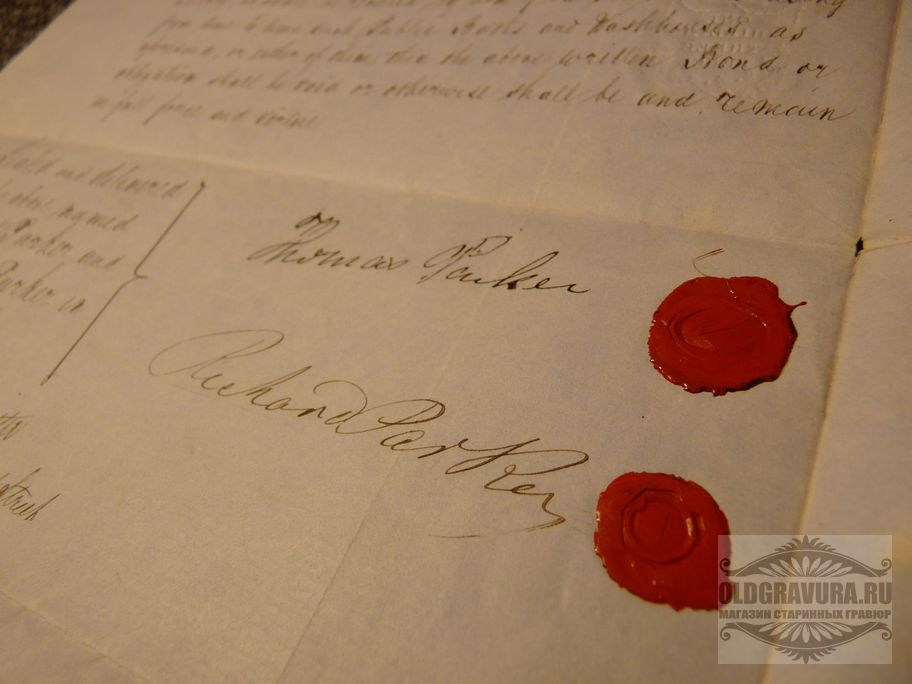 from time to time such Public Baths and Washhouses as
aforesaid, or either of them, then the above written Bond or
obligation shall be void or otherwise shall be and remain
in full force and virtue
and delivered
above named
Parker and
Parker in
Thomas Parker
Richard Parker
OLDGRAVURA.RU
МАГАЗИН СТАРИННЫХ ГРАВЮР